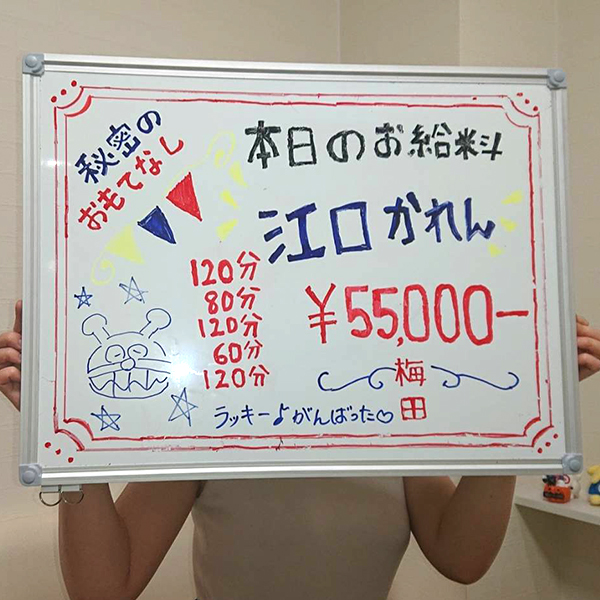 秘密の
おもてなし
本日のお給料
江口かれん
120分
80分
120分
60分
120分
¥55,000-
梅田
ラッキー♪がんばった♡